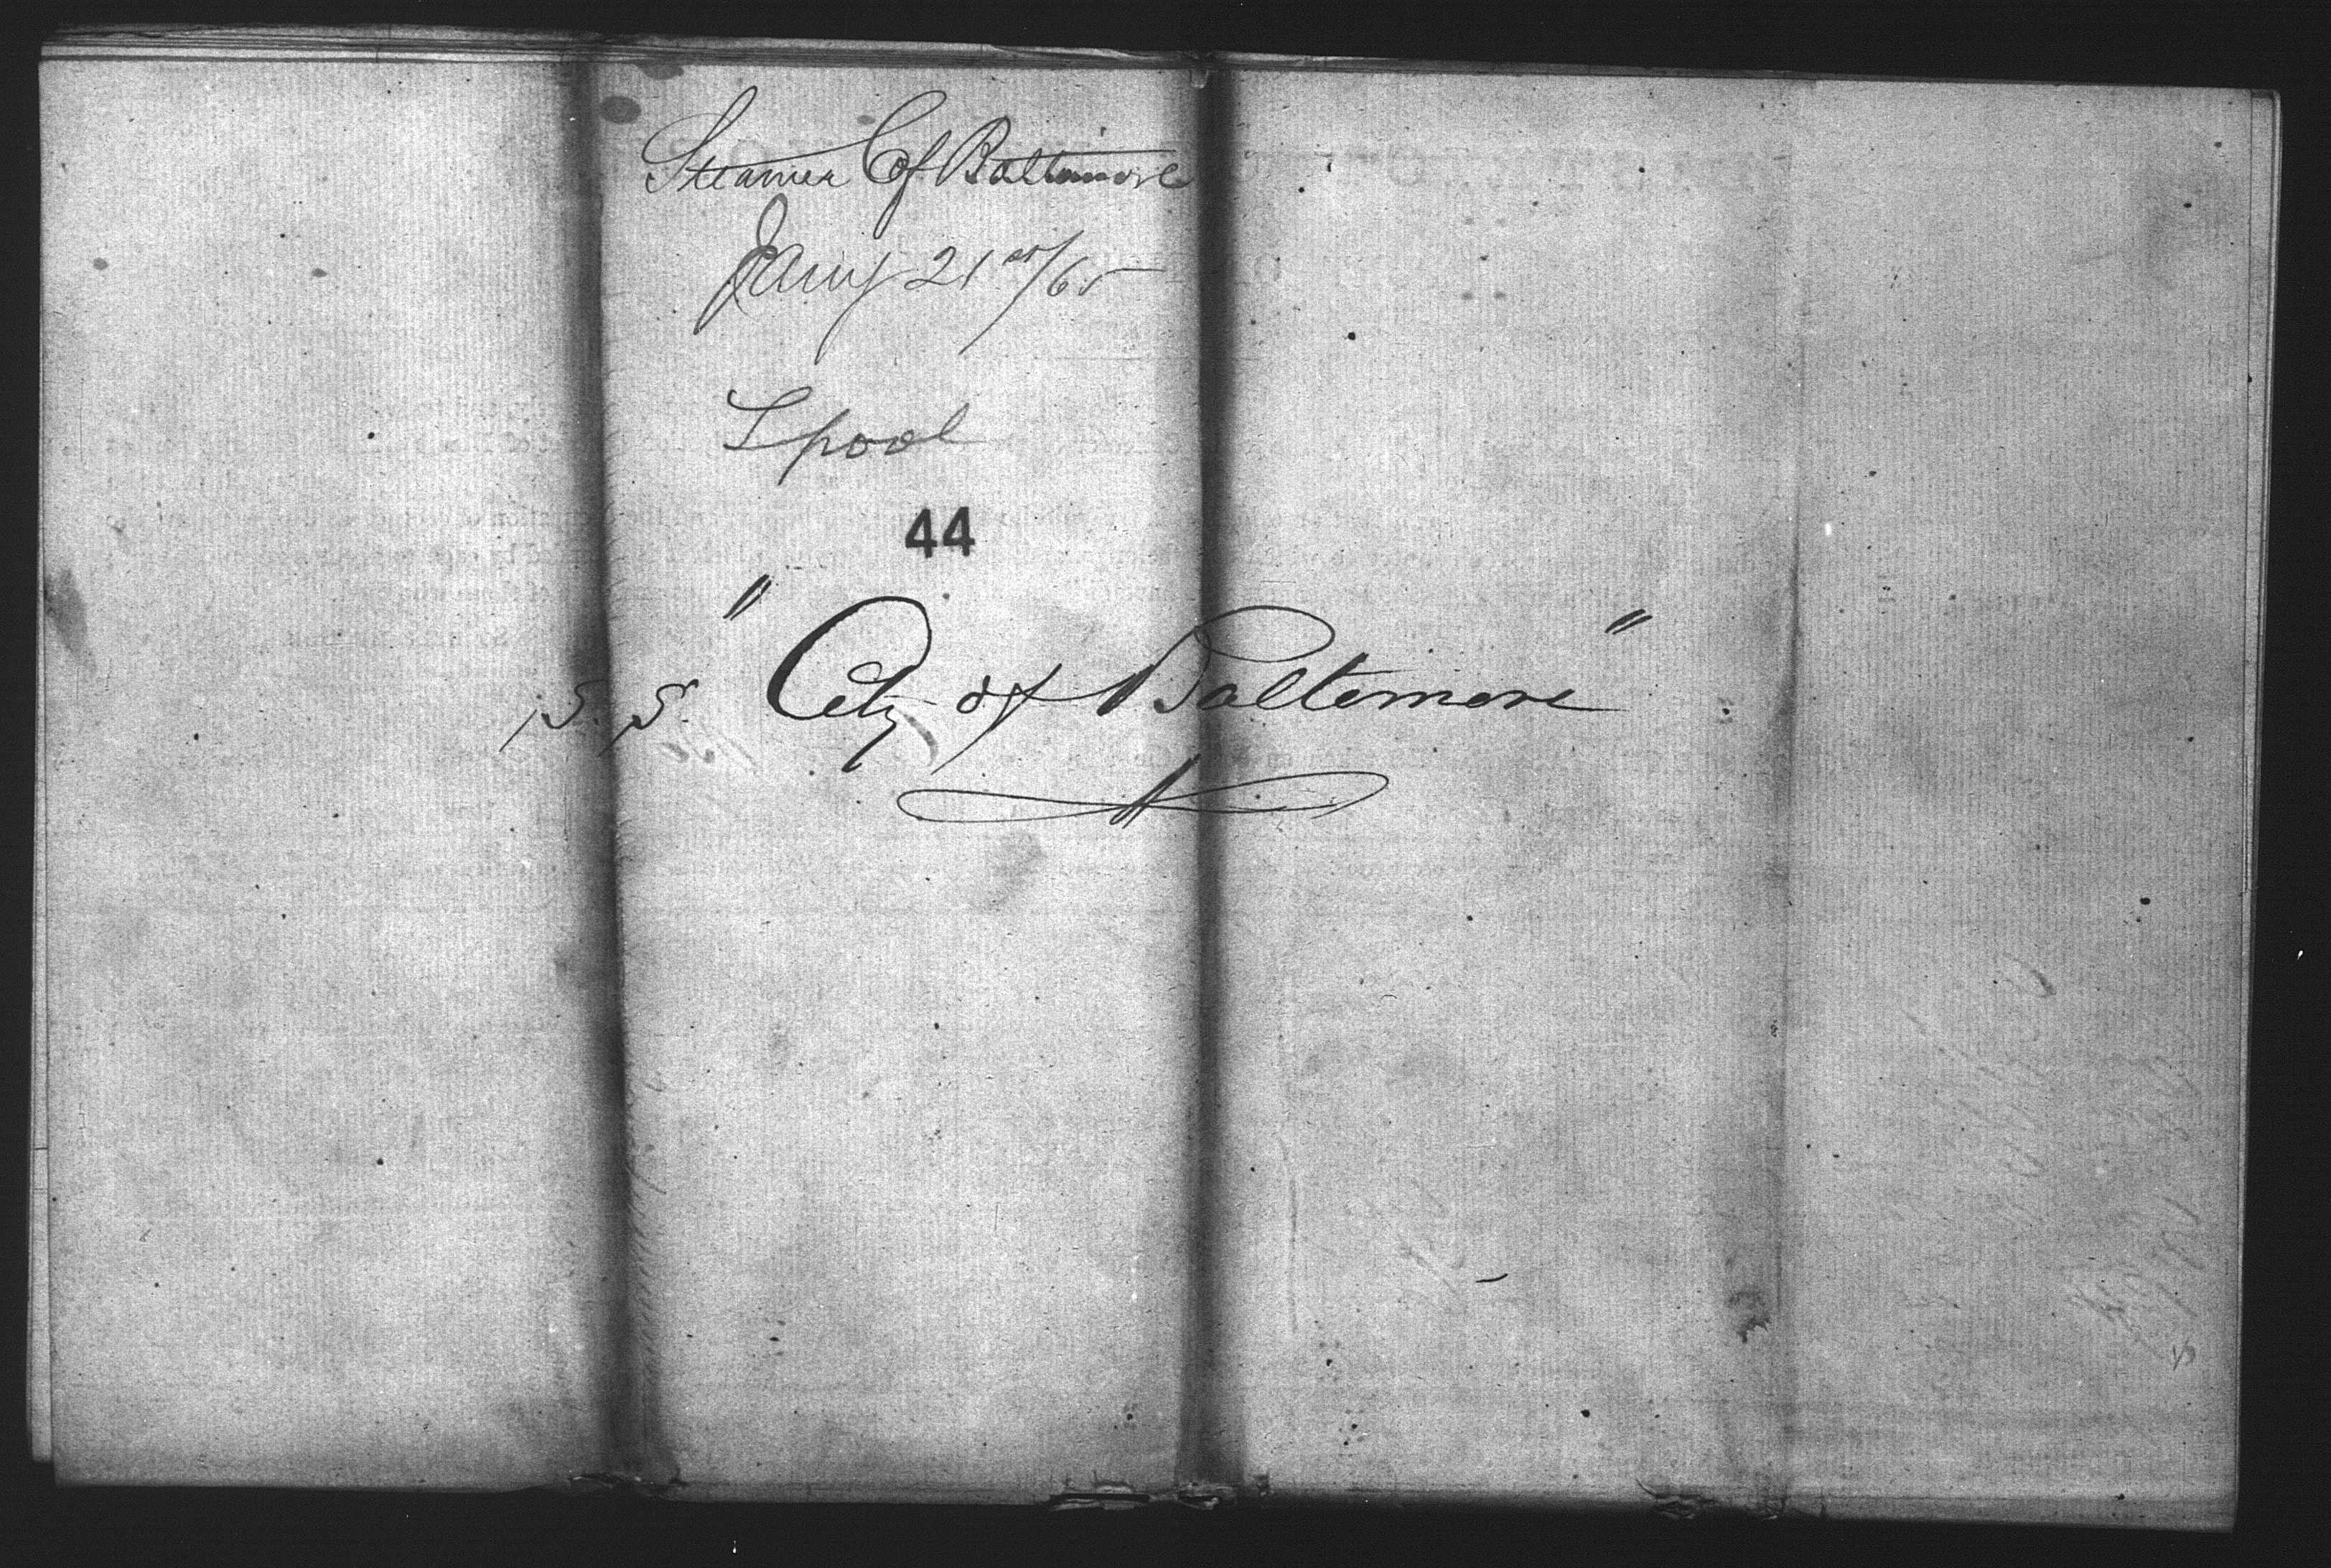 Steamer C of Baltimore
Jany 21st/65
Lpool
44
S.S. "City of Baltimore"